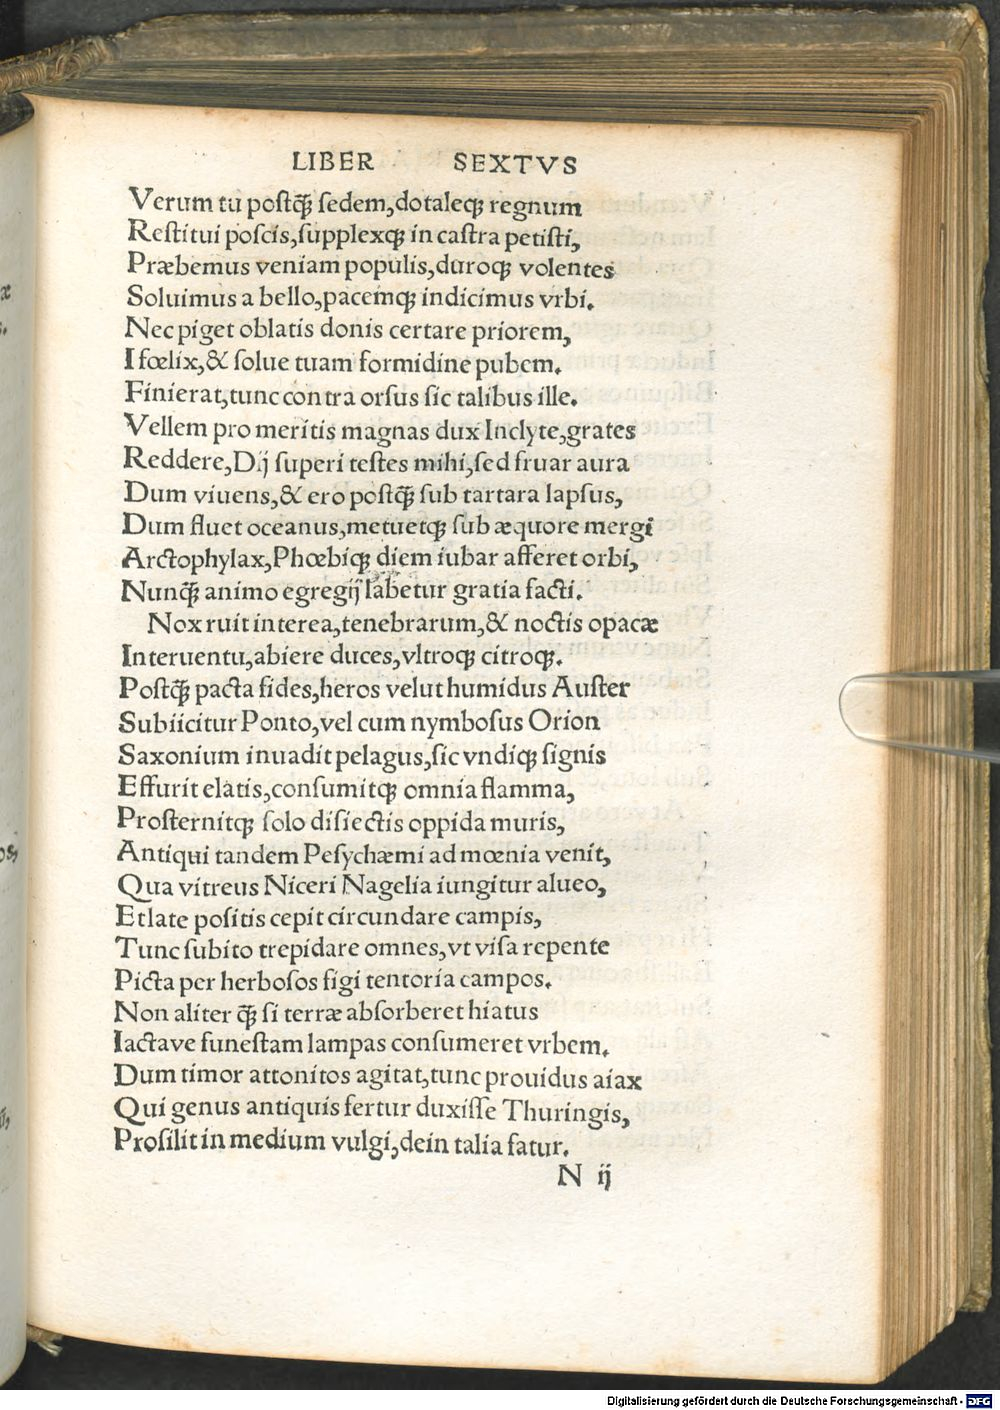 LIBER SEXTVS
Verum tu postꝗ̃ sedem, dotaleqꝫ regnum
Restitui poscis, supplexqꝫ in castra petisti,
Præbemus veniam populis, duroqꝫ volentes
Soluimus a bello, pacemqꝫ indicimus vrbi.
Nec piget oblatis donis certare priorem,
I fœlix, & solue tuam formidine pubem.
Finierat, tunc contra orsus sic talibus ille.
Vellem pro meritis magnas dux Inclyte, grates
Reddere, Dij superi testes mihi, sed fruar aura
Dum viuens, & ero postꝗ̃ sub tartara lapsus,
Dum fluet oceanus, metuetqꝫ sub æquore mergi
Arctophylax, Phœbiqꝫ diem iubar afferet orbi,
Nunꝗ̃ animo egregij labetur gratia facti.
Nox ruit interea, tenebrarum, & noctis opacæ
Interuentu, abiere duces, vltroqꝫ citroqꝫ.
Postꝗ̃ pacta fides, heros velut humidus Auster
Subiicitur Ponto, vel cum nymbosus Orion
Saxonium inuadit pelagus, sic vndiqꝫ signis
Effurit elatis, consumitqꝫ omnia flamma,
Prosternitqꝫ solo disiectis oppida muris,
Antiqui tandem Pesychæmi ad mœnia venit,
Qua vitreus Niceri Nagelia iungitur alueo,
Et late positis cepit circundare campis,
Tunc subito trepidare omnes, vt visa repente
Picta per herbosos figi tentoria campos.
Non aliter ꝗ̃ si terræ absorberet hiatus
Iactave funestam lampas consumeret vrbem.
Dum timor attonitos agitat, tunc prouidus aiax
Qui genus antiquis fertur duxisse Thuringis,
Prosilit in medium vulgi, dein talia fatur.
N ij
Digitalisierung gefördert durch die Deutsche Forschungsgemeinschaft - DFG